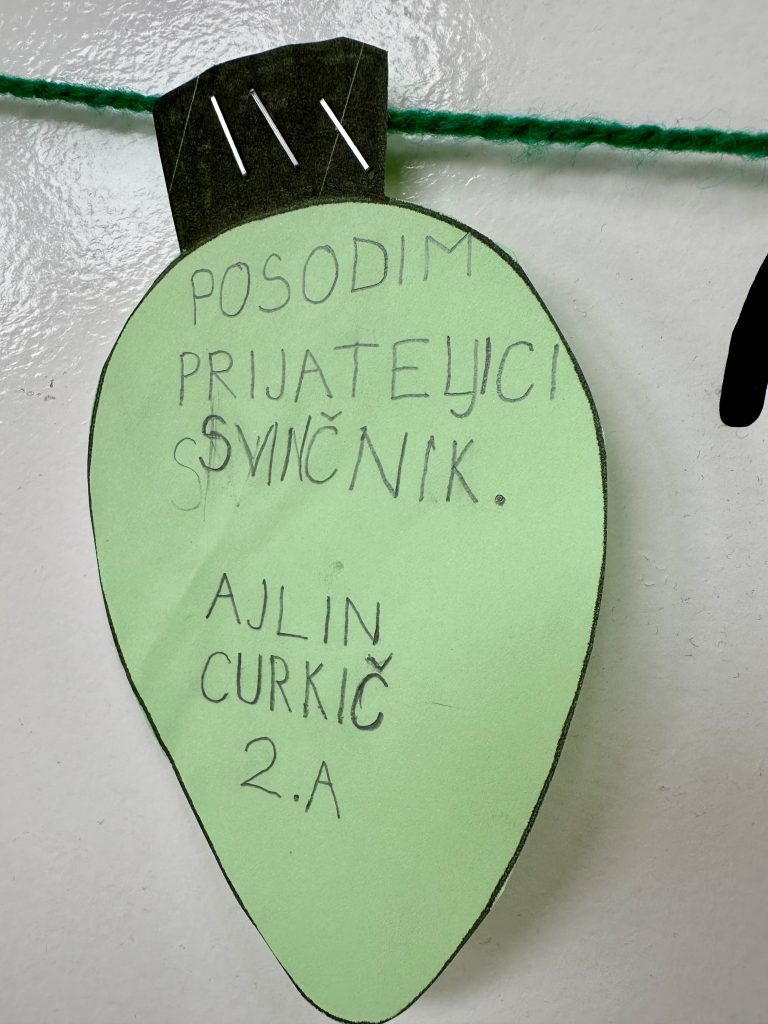 POSODIM
PRIJATELJICI
SVINČNIK.
AJLIN
CURKIČ
2.A